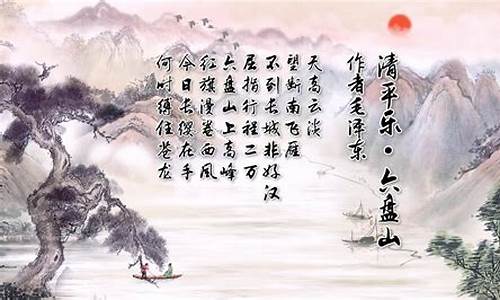 清平乐·六盘山
作者毛泽东
天高云淡
望断南飞雁
不到长城非好汉
屈指行程二万
六盘山上高峰
红旗漫卷西风
今日长缨在手
何时缚住苍龙